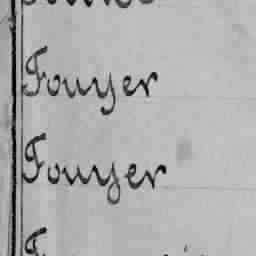 Fouyer
Fouyer